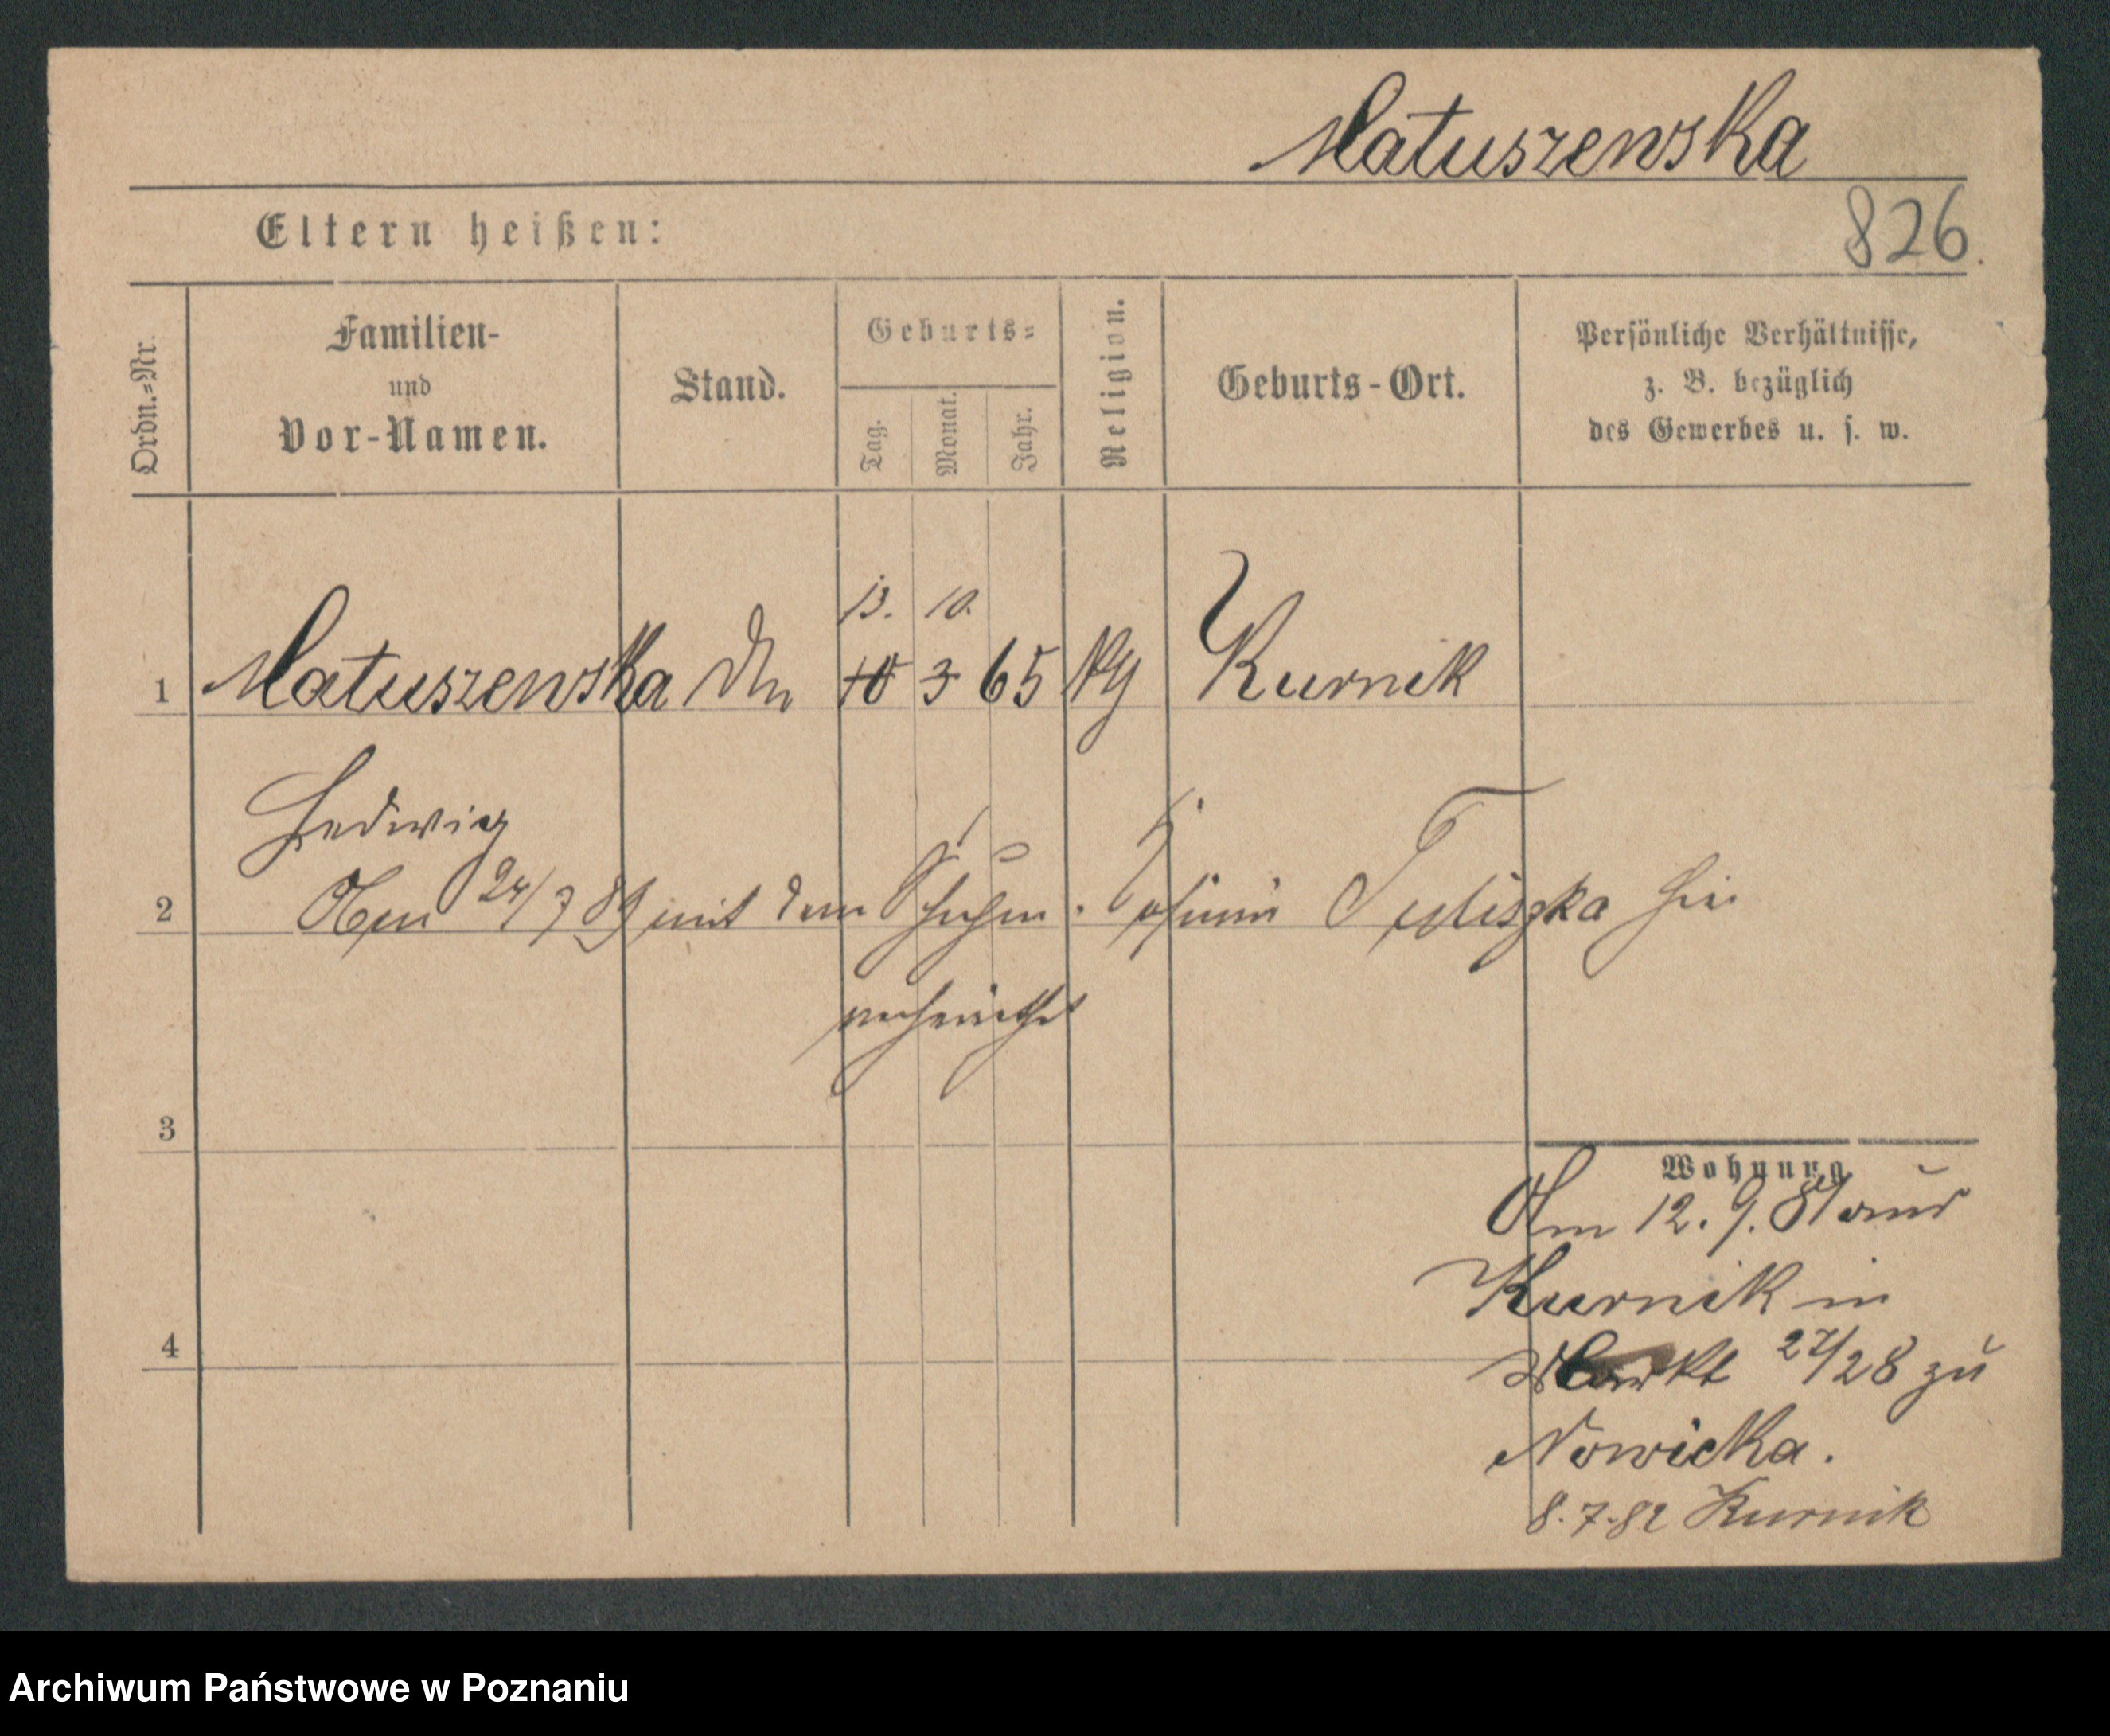 Matuszewska
826.
Eltern heißen:
Ordn.=Nr.
Familien-
und
Vor-Namen.
Stand.
Geburts=
Tag.
Monat.
Jahr.
Religion.
Geburts-Ort.
Persönliche Verhältnisse,
z. B. bezüglich
des Gewerbes u. s. w.
13. 10.
1 Matuszewska 10 3 65 Kurnik
Hedwig
2 Am 24/7 89 mit dem hier
verheirathet
3
Wohnung
Am 12. 9. 81 aus
Kurnik in
4
Markt 27/28 zu
Nowicka.
8.7.82 Kurnik
Archiwum Państwowe w Poznaniu